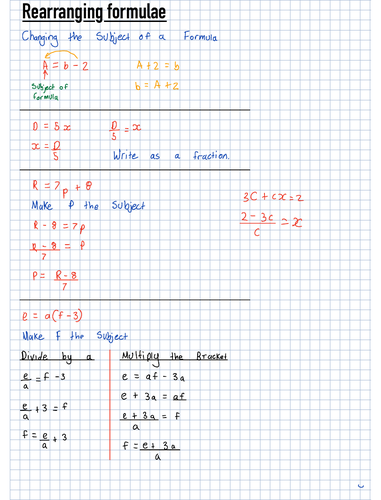 Rearranging formulae
Changing the Subject of a Formula
A = b - 2
A + 2 = b
Subject of formula
b = A + 2
D = 5x
D/5 = x
x = D/5
Write as a fraction.
R = 7p + 8
Make P the Subject
R - 8 = 7p
R - 8/7 = p
P = R - 8/7
3C + cx = 2
2 - 3c/c = x
e = a(f - 3)
Make F the Subject
Divide by a
e/a = f - 3
e/a + 3 = f
f = e/a + 3
Multiply the Bracket
e = af - 3a
e + 3a = af
e + 3a/a = f
f = e + 3a/a